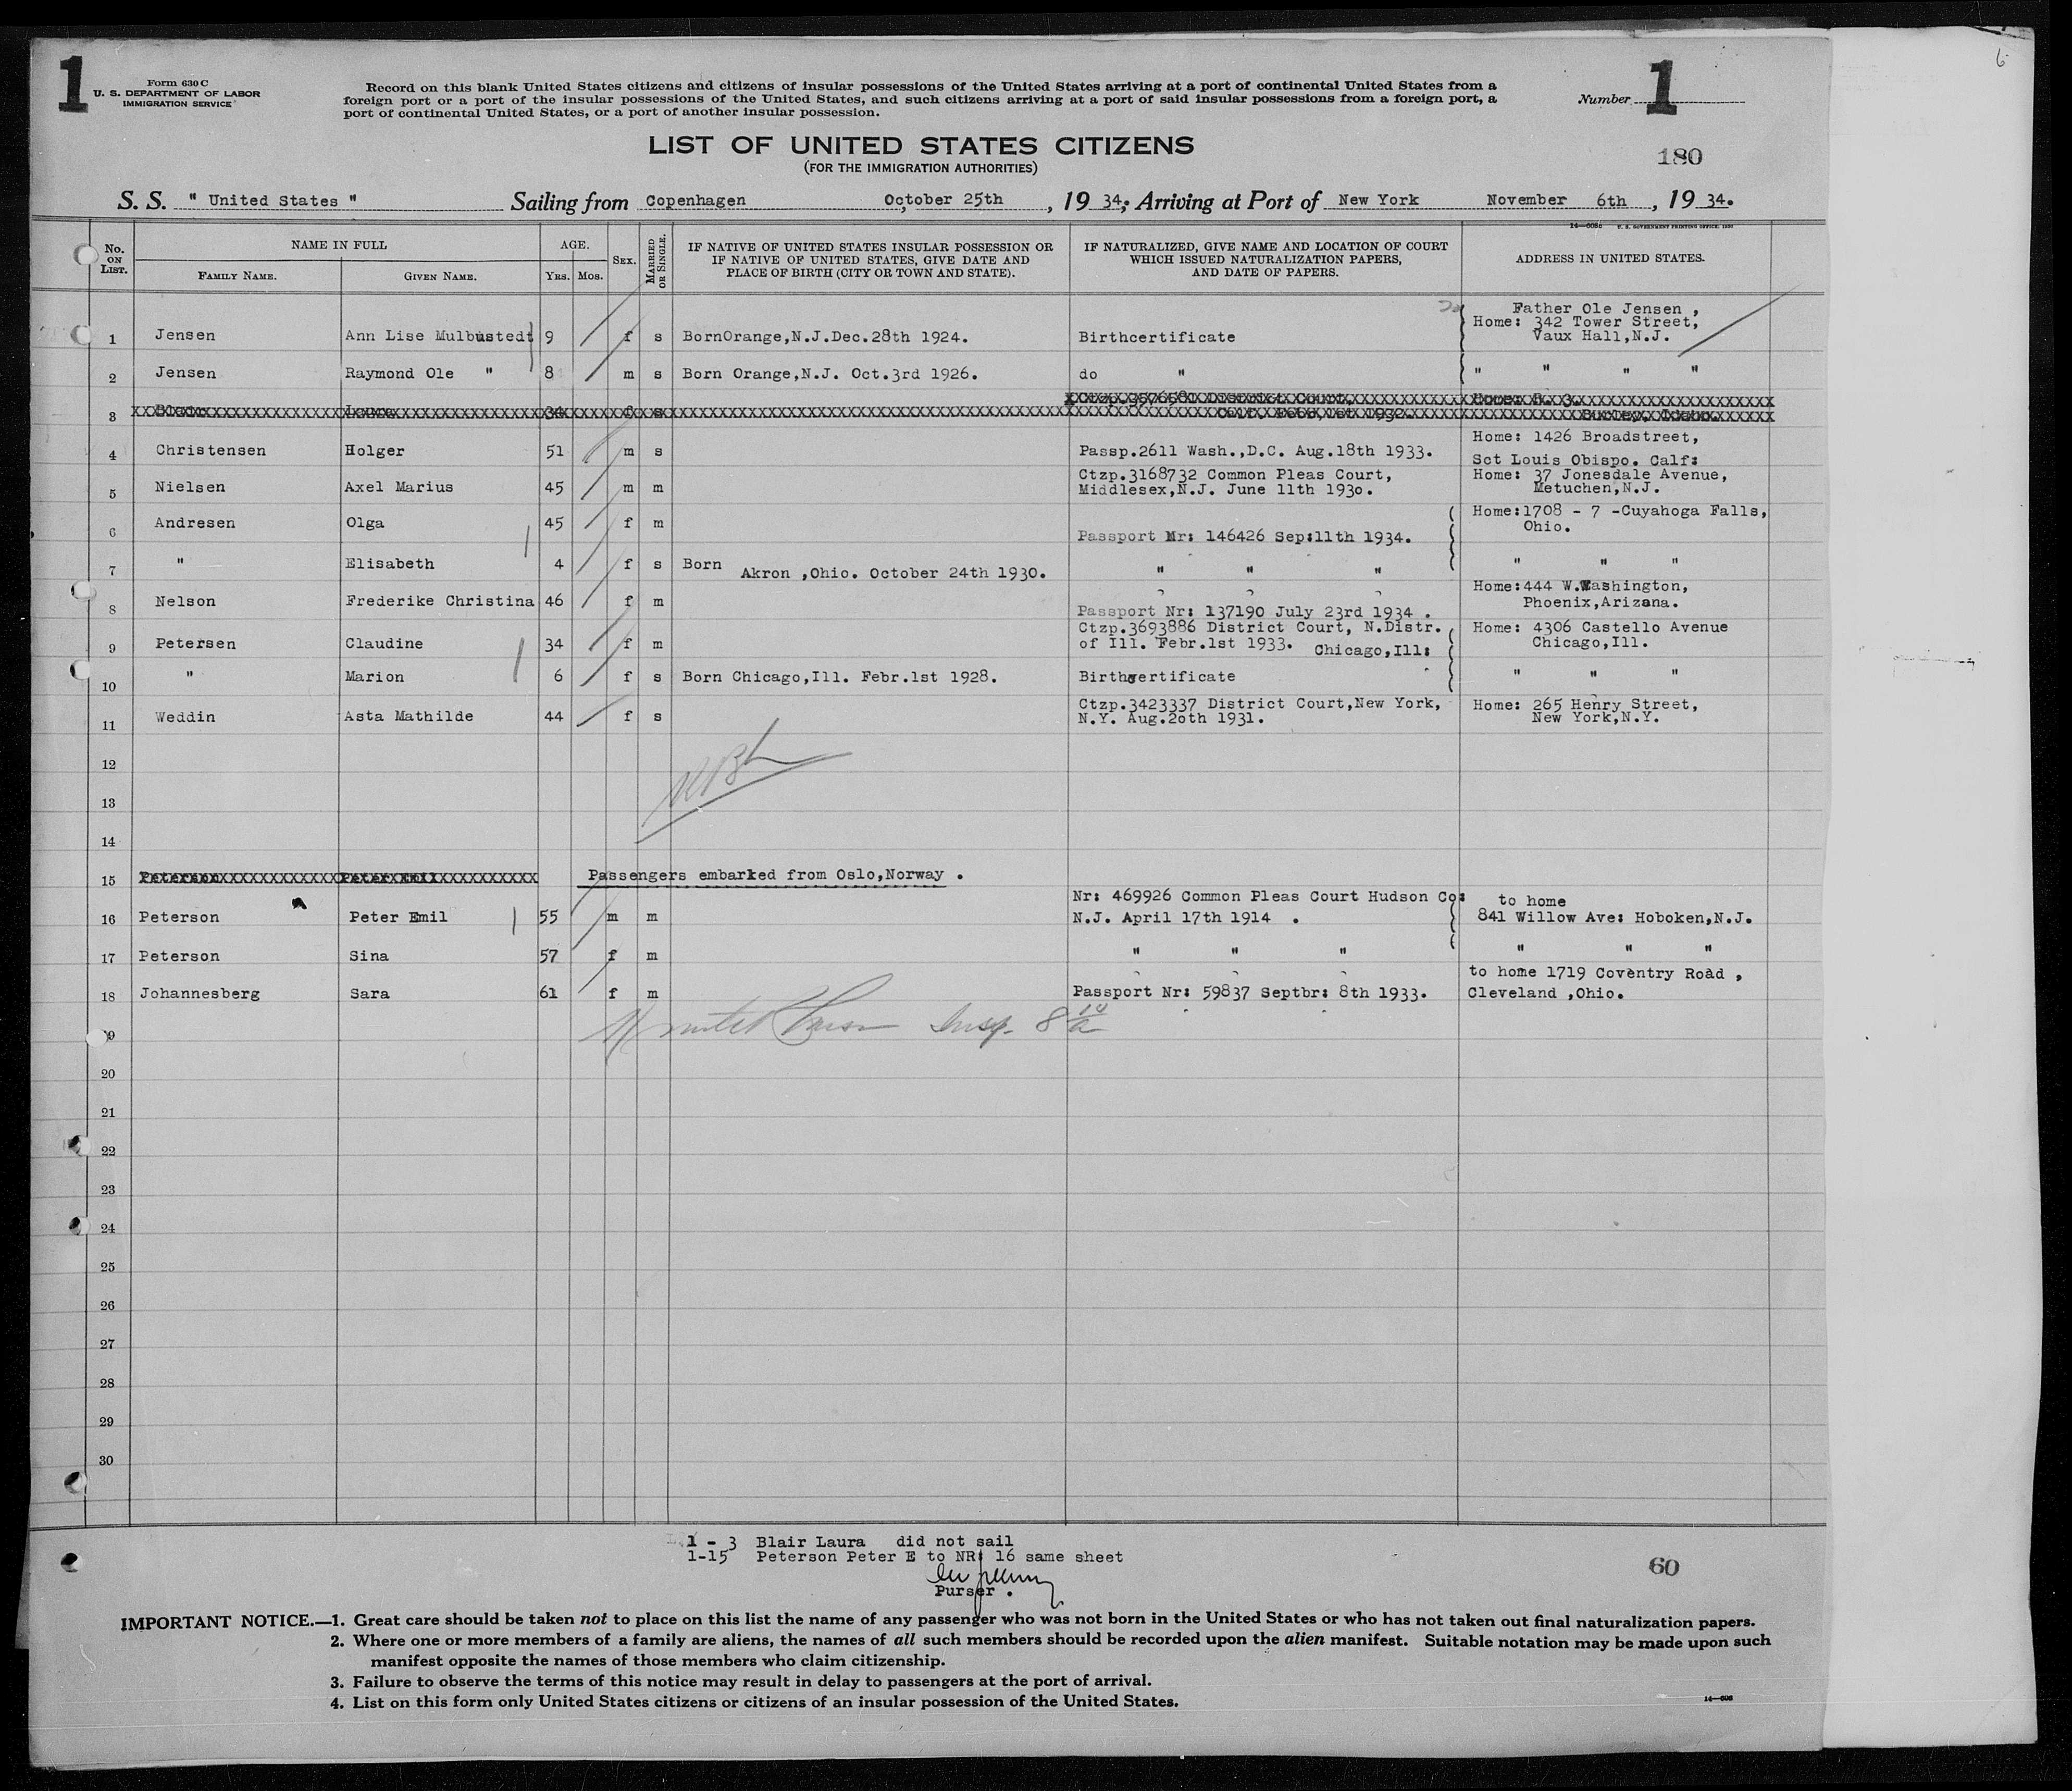 1
Form 630 C
U. S. DEPARTMENT OF LABOR
IMMIGRATION SERVICE
Record on this blank United States citizens and citizens of insular possessions of the United States arriving at a port of continental United States from a
foreign port or a port of the insular possessions of the United States, and such citizens arriving at a port of said insular possessions from a foreign port, a
port of continental United States, or a port of another insular possession.
Number 1
LIST OF UNITED STATES CITIZENS
(FOR THE IMMIGRATION AUTHORITIES)
180
S. S. " United States " Sailing from Copenhagen October 25th , 19 34; Arriving at Port of New York November 6th , 19 34.
No. ON LIST. NAME IN FULL FAMILY NAME. GIVEN NAME. AGE. YRS. MOS. SEX. MARRIED OR SINGLE.
IF NATIVE OF UNITED STATES INSULAR POSSESSION OR
IF NATIVE OF UNITED STATES, GIVE DATE AND
PLACE OF BIRTH (CITY OR TOWN AND STATE).
IF NATURALIZED, GIVE NAME AND LOCATION OF COURT
WHICH ISSUED NATURALIZATION PAPERS,
AND DATE OF PAPERS.
ADDRESS IN UNITED STATES.
Father Ole Jensen ,
Home: 342 Tower Street,
1 Jensen Ann Lise Mulbustedt 9 f s BornOrange,N.J.Dec.28th 1924. Birthcertificate Vaux Hall,N.J.
2 Jensen Raymond Ole " 8 m s Born Orange,N.J. Oct.3rd 1926. do " " " " "
Ctzp.3576581 District Court, Home: R. 3.
3 Blair Laura 34 f s Calf. Febr.1st 1932. Burley, Idaho.
Home: 1426 Broadstreet,
4 Christensen Holger 51 m s Passp.2611 Wash.,D.C. Aug.18th 1933. Sct Louis Obispo. Calf:
Ctzp.3168732 Common Pleas Court, Home: 37 Jonesdale Avenue,
5 Nielsen Axel Marius 45 m m Middlesex,N.J. June 11th 193o. Metuchen,N.J.
Home:1708 - 7 -Cuyahoga Falls,
6 Andresen Olga 45 f m Passport Nr: 146426 Sep:11th 1934. Ohio.
7 " Elisabeth 4 f s Born Akron ,Ohio. October 24th 1930. " " " " " "
Home:444 W.Washington,
8 Nelson Frederike Christina 46 f m Passport Nr: 137190 July 23rd 1934 . Phoenix,Arizona.
Ctzp.3693886 District Court, N.Distr. Home: 4306 Castello Avenue
9 Petersen Claudine 34 f m of Ill. Febr.1st 1933. Chicago,Ill: Chicago,Ill.
10 " Marion 6 f s Born Chicago,Ill. Febr.1st 1928. Birthcertificate " " "
Ctzp.3423337 District Court,New York, Home: 265 Henry Street,
11 Weddin Asta Mathilde 44 f s N.Y. Aug.2oth 1931. New York,N.Y.
12
13
14
15 Peterson Peter Emil Passengers embarked from Oslo,Norway .
Nr: 469926 Common Pleas Court Hudson Co: to home
16 Peterson Peter Emil 55 m m N.J. April 17th 1914 . 841 Willow Ave: Hoboken,N.J.
17 Peterson Sina 57 f m " " " " " "
to home 1719 Coventry Road ,
18 Johannesberg Sara 61 f m Passport Nr: 59837 Septbr: 8th 1933. Cleveland ,Ohio.
Insp.
20
21
22
23
24
25
26
27
28
29
30
1 - 3 Blair Laura did not sail
1-15 Peterson Peter E to NR: 16 same sheet
Purser .
60
IMPORTANT NOTICE.—1. Great care should be taken not to place on this list the name of any passenger who was not born in the United States or who has not taken out final naturalization papers.
2. Where one or more members of a family are aliens, the names of all such members should be recorded upon the alien manifest. Suitable notation may be made upon such
manifest opposite the names of those members who claim citizenship.
3. Failure to observe the terms of this notice may result in delay to passengers at the port of arrival.
4. List on this form only United States citizens or citizens of an insular possession of the United States.